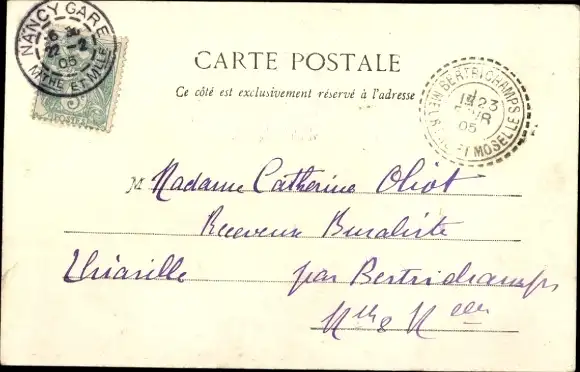 NANCY GARE
6
22 - 2
05
MTHE ET MLLE
5
CARTE POSTALE
Ce côté est exclusivement réservé à l'adresse
BERTRICHAMPS
23
05
MOSELLE
M Madame Catherine Oliot
Receveur Buraliste
Thiaville par Bertrichamps
Mthe & Melle